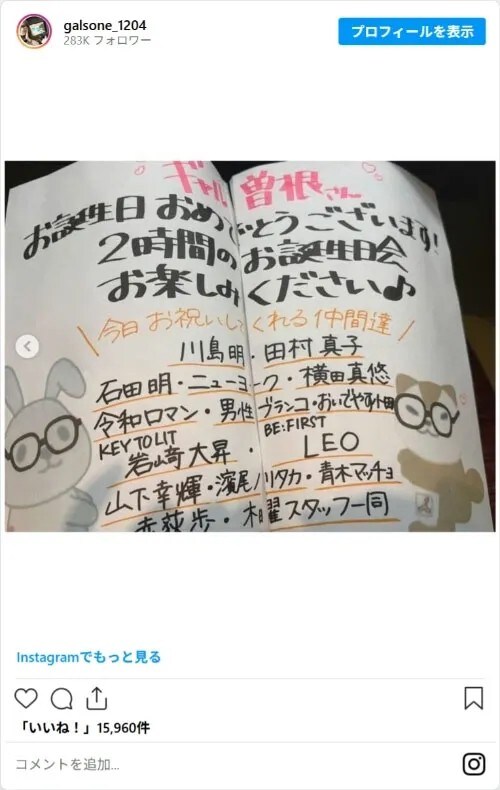 galsone_1204
283K フォロワー
プロフィールを表示
ギャル曽根さん
お誕生日おめでとうございます!
2時間のお誕生日会
お楽しみください♪
\今日お祝いしてくれる仲間達/
川島明・田村真子
石田明・ニューヨーク・横田真悠
令和ロマン・男性ブランコ・おいでやす小田
KEY TO LIT BE:FIRST
岩﨑大昇・LEO
山下幸輝・濱尾ノリタカ・青木マッチョ
赤荻歩・木曜スタッフ一同
Instagramでもっと見る
「いいね！」15,960件
コメントを追加...